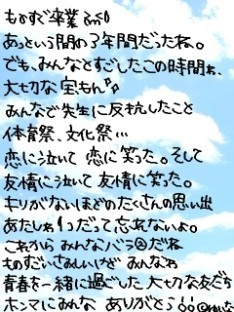 もうすぐ卒業
あっという間の3年間だったね。
でも、みんなとすごしたこの時間わ、
大切な宝もん
みんなで先生に反抗したこと
体育祭、文化祭…
恋に泣いて 恋に笑った。そして
友情に泣いて 友情に笑った。
キリがないほどのたくさんの思い出
あたしゎ1つだって忘れないよ。
これから みんなバラ②だね
ものすごいさみしいけど みんなゎ
青春を一緒に過ごした 大切な友だち
ホンマにみんな ありがとう!!